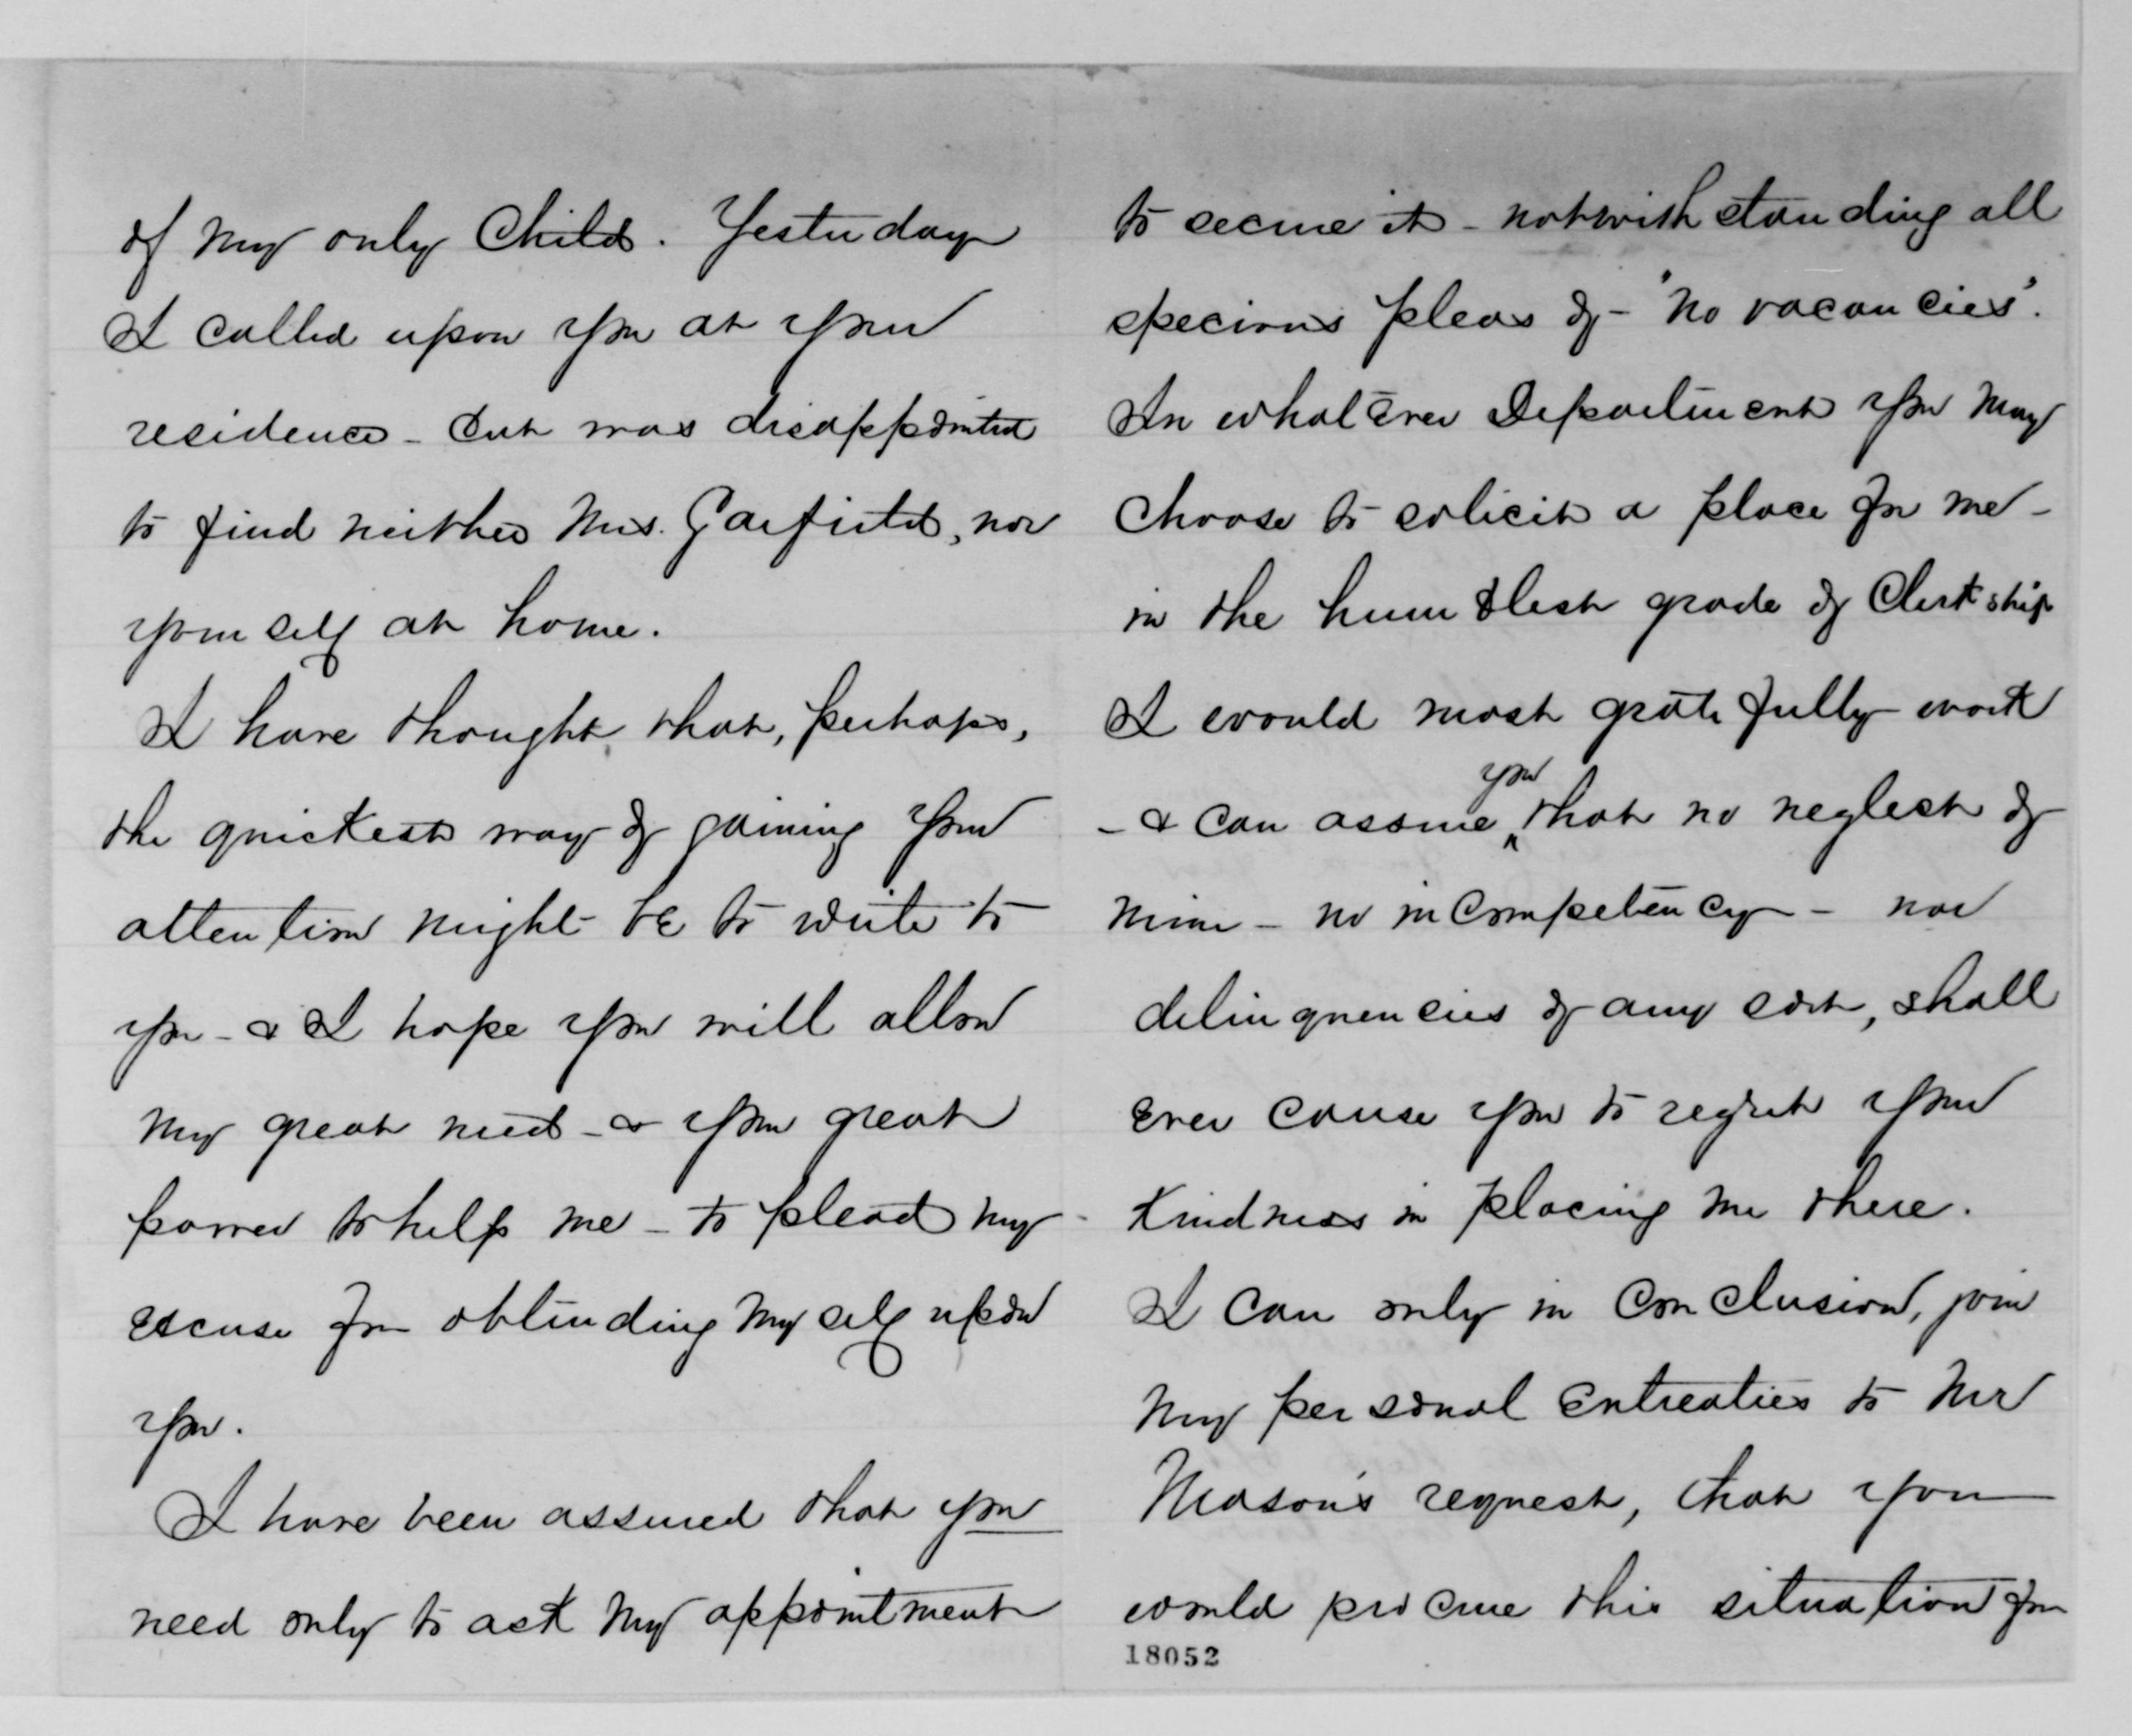 of my only Child. Yesterday
I called upon you at your
residence - but was disappointed
to find neither Mrs. Garfield, nor
yourself at home.
I have thought that, perhaps,
the quickest way of gaining your
attention might be to write to
you - & I hope you will allow
my great need - & your great
power to help me - to plead my
excuse for obtruding myself upon
you.
I have been assured that you
need only to ask my appointment
to secure it - notwithstanding all
specious pleas of - "no vacancies".
In whatever Department you may
choose to solicit a place for me -
in the humblest grade of Clerkship
I would most gratefully work
- & can assure you that no neglect of
mine - no incompetency - nor
delinquencies of any sort, shall
ever cause you to regret your
kindness in placing me there.
I can only in conclusion, join
my personal entreaties to Mr
Mason's request, that you
would procure this situation for
18052